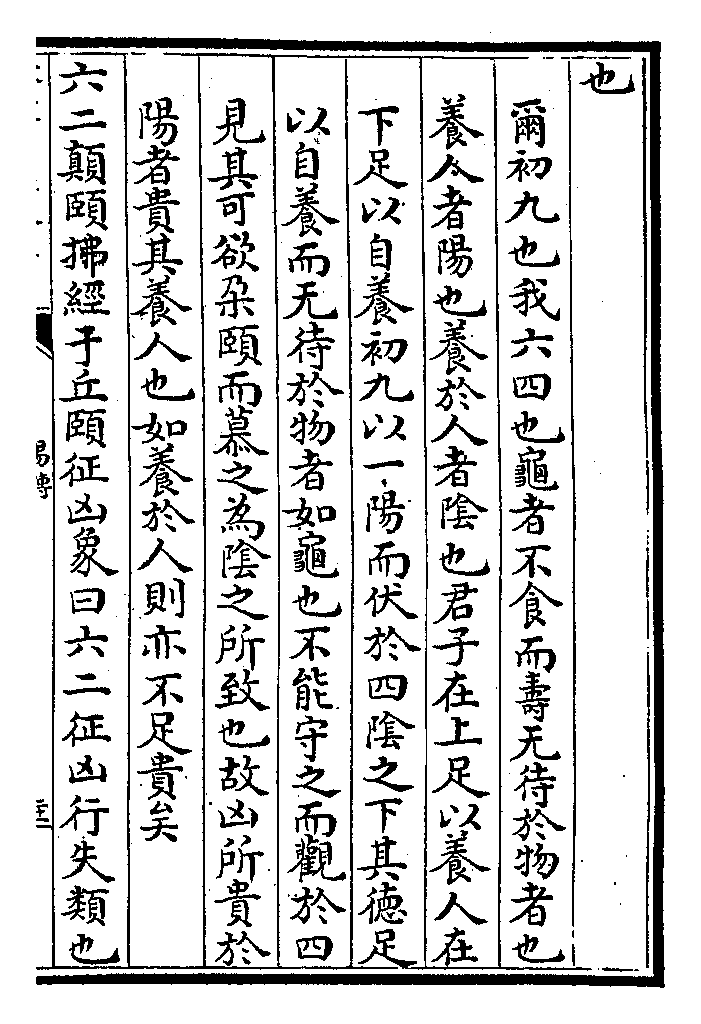 也
爾初九也我六四也龜者不食而壽无待於物者也
養人者陽也養於人者陰也君子在上足以養人在
下足以自養初九以一陽而伏於四陰之下其德足
以自養而无待於物者如龜也不能守之而觀於四
見其可欲朶頤而慕之為陰之所致也故凶所貴於
陽者貴其養人也如養於人則亦不足貴矣
六二顛頤拂經于丘頤征凶象曰六二征凶行失類也
易傳